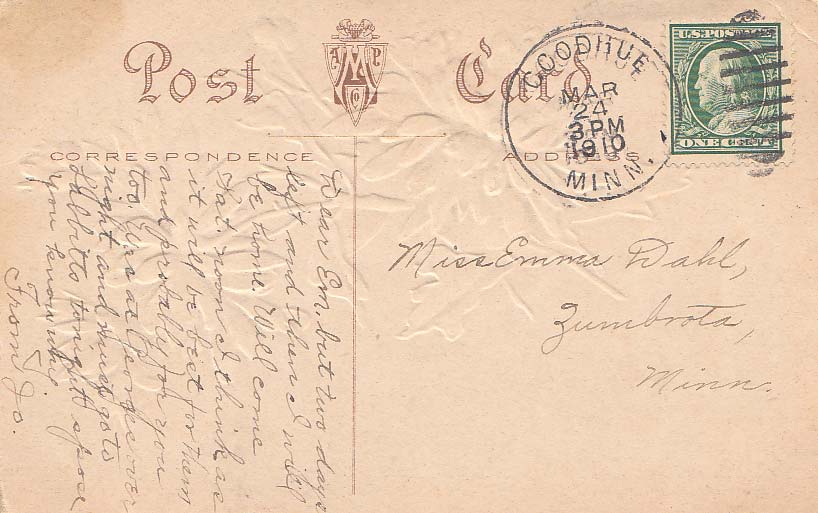 Post Card
A M P Co
CORRESPONDENCE
ADDRESS
GOODHUE
MAR
24
3 PM
1910
MINN.
U.S. POSTAGE
ONE CENT
Miss Emma Dahl,
Zumbrota,
Minn.
Dear Em. but two days
left and then I will
be home. Will come
Sat. noon I think as
it will be best for them
and probably for you
too. Was at over
night and must go to
tonight spose
you know why.
From Jo.